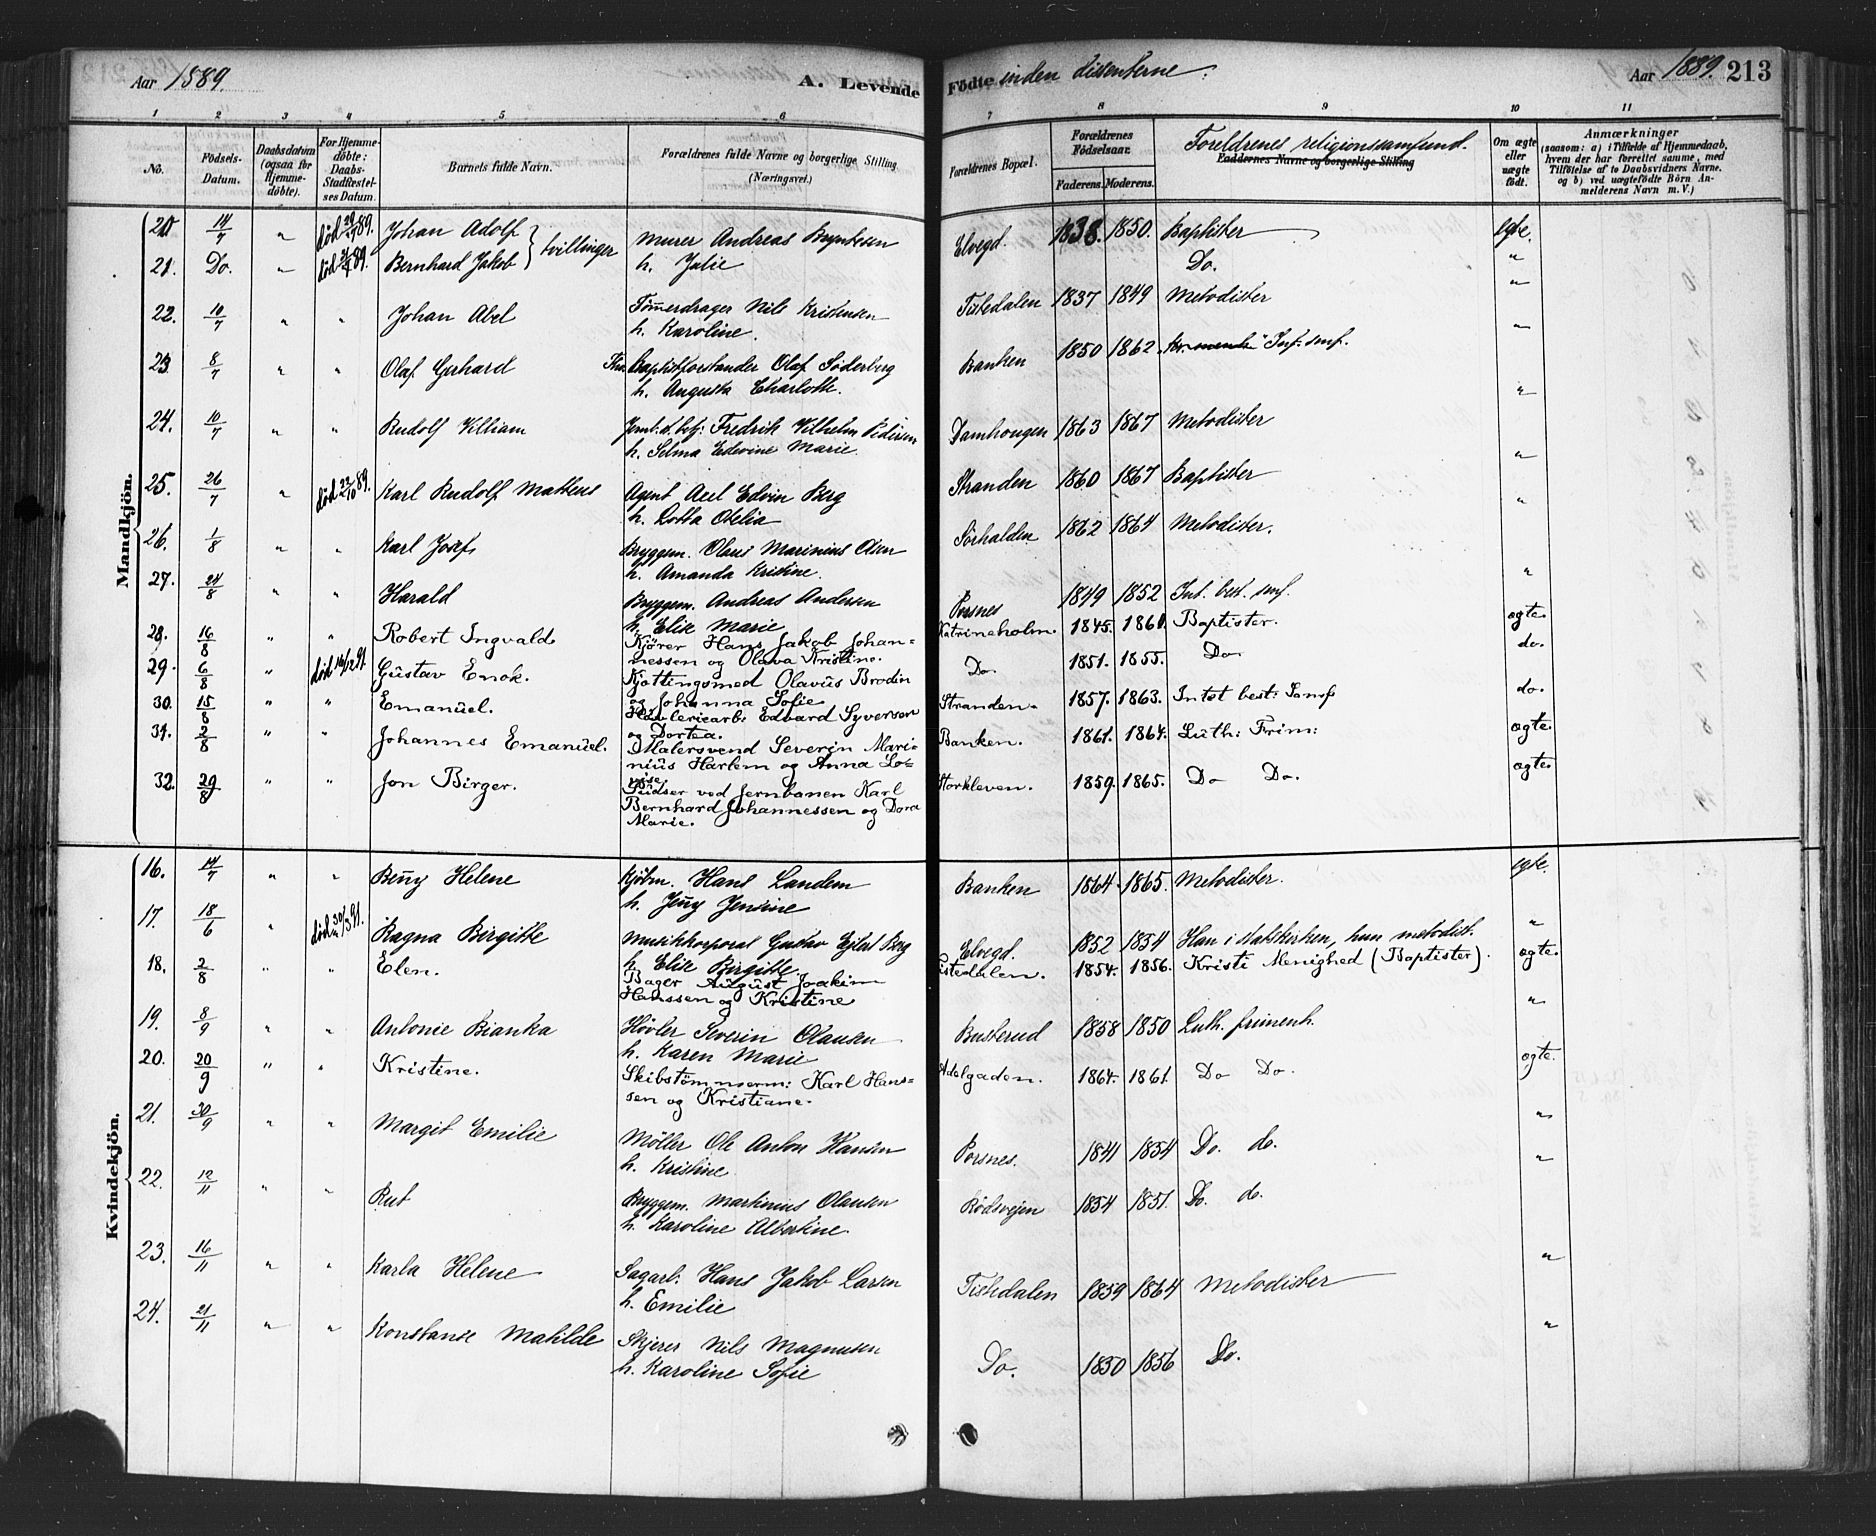 Aar 1889.
A. Levende
Födte inden dissenterne.
Aar 1889. 213
1 2 3 4 5 6 7 8 9 10 11
No.
Födsels-Datum.
Daabsdatum (ogsaa for Hjemmedöbte).
For Hjemmedöbte: Daabs-Stadfestelses Datum.
Barnets fulde Navn.
Forældrenes fulde Navne og borgerlige Stilling. (Næringsvei.)
Forældrenes Bopæl.
Forældrenes Födselsaar.
Faderens. Moderens.
Foreldrenes religionssamfund.
Faddernes Navne og borgerlige Stilling
Om ægte eller uægte födt.
Anmærkninger (saasom: a) i Tilfælde af Hjemmedaab, hvem der har forrettet samme, med Tilföielse af to Daabsvidners Navne, og b) ved uægtefödte Börn Anmelderens Navn m. V.)
Mandkjön.
20 14/7 " död 29/7 89. Johan Adolf } tvillinger Murer Andreas Bryntesen Elvegd. 1838. 1850. Baptister egte.
21. Do. " död 89. Bernhard Jakob h. Julie Do. "
22. 10/7 " " Johan Abel Tömmerdrager Nils Kristensen Tistedalen 1837 1849 Metodister "
h. Karoline.
23 8/7 " " Olaf Gerhard Baptistforstander Olaf Söderberg Banken 1850 1862 Inf. smf. "
h. Augusta Charlotte.
24. 10/7 " " Rudolf Villiam Jernb. Fredrik Vilhelm Pedersen Damhougen 1863 1867 Metodister "
h. Selma Edevine Marie
25. 26/7 " död 22/10 89. Karl Rudolf Matheus Agent Axel Edvin Berg Stranden 1860 1867 Baptister "
h. Lotta Otelia
26. 1/8 " " Karl Josef Bryggem. Olaus Marinius Olsen Sörhalden 1862 1864 Metodister. "
h. Amanda Kristine.
27. 24/8 " " Harald Bryggem. Andreas Andersen Porsnes 1849 1852 Int. best. smf. "
h. Elise Marie
28. 16/8 " " Robert Ingvald Kjörer Hans Jakob Johan- Katrineholm. 1845. 1860. Baptister. ægte.
nessen og Olava Kristine.
29. 6/8 " död 16/12 91. Gustav Enok. Kjöttingsmed Olavus Brodin Do 1851. 1855. Do do.
og Johanna Sofie
30. 15/8 " " Emanuel. Høvleriearb: Edvard Syversen Stranden. 1857. 1863. Intet best: Samf: do.
og Dortea.
31. 2/8 " " Johannes Emanuel. Malersvend Severin Mari- Banken. 1861. 1864. Luth: Frim: ægte.
nius Harlem og Anna Lo-
vise.
32. 29/8 " " Jon Birger. Pudser ved Jernbanen Karl Storkleven. 1859. 1865. Do Do. ægte.
Bernhard Johannessen og Dora
Marie.
Kvindekjön.
16. 14/7 " " Benny Helene Kjöbm. Hans Landem Banken 1864 1865. Metodister. egte.
h. Jenny Jensine
17. 18/6 " död 30/3 91. Ragna Birgitte Musikkorporal Gustav Ejlert Berg Elvegd. 1852 1854 Han i statskirken, hun metodist. "
h. Elise Birgitte.
18. 2/8 " " Elen. Bager August Joakim Tistedalen. 1854. 1856. Kristi Menighed (Baptister). ægte.
Hanssen og Kristine
19. 8/9 " " Antonie Bianka Hövler Severin Olausen Busterud 1858 1850 Luth. frimenh. "
h. Karen Marie
20. 20/9 " " Kristine. Skibstömmerm: Karl Hans- Adelgaden. 1864. 1861. Do Do. ægte.
sen og Kristiane.
21. 30/9 " " Margit Emilie Möller Ole Anton Hansen Porsnes. 1841 1854 Do. do. "
h. Kristine
22. 12/11 " " Rut Bryggem. Martinius Olausen Rödsvejen 1854 1851. Do. do. "
h. Karoline Albertine.
23. 16/11 " " Karla Helene Sagarb. Hans Jakob Larsen Tistedalen 1859 1864 Metodister "
h. Emilie
24. 21/11 " " Konstanse Matilde Skjerer Nils Magnusen Do. 1850 1856 Do. "
h. Karoline Sofie